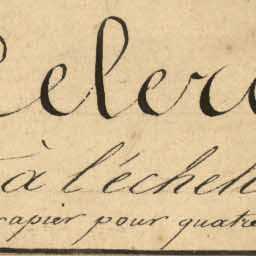 eler
à l'échel
apier pour quatre